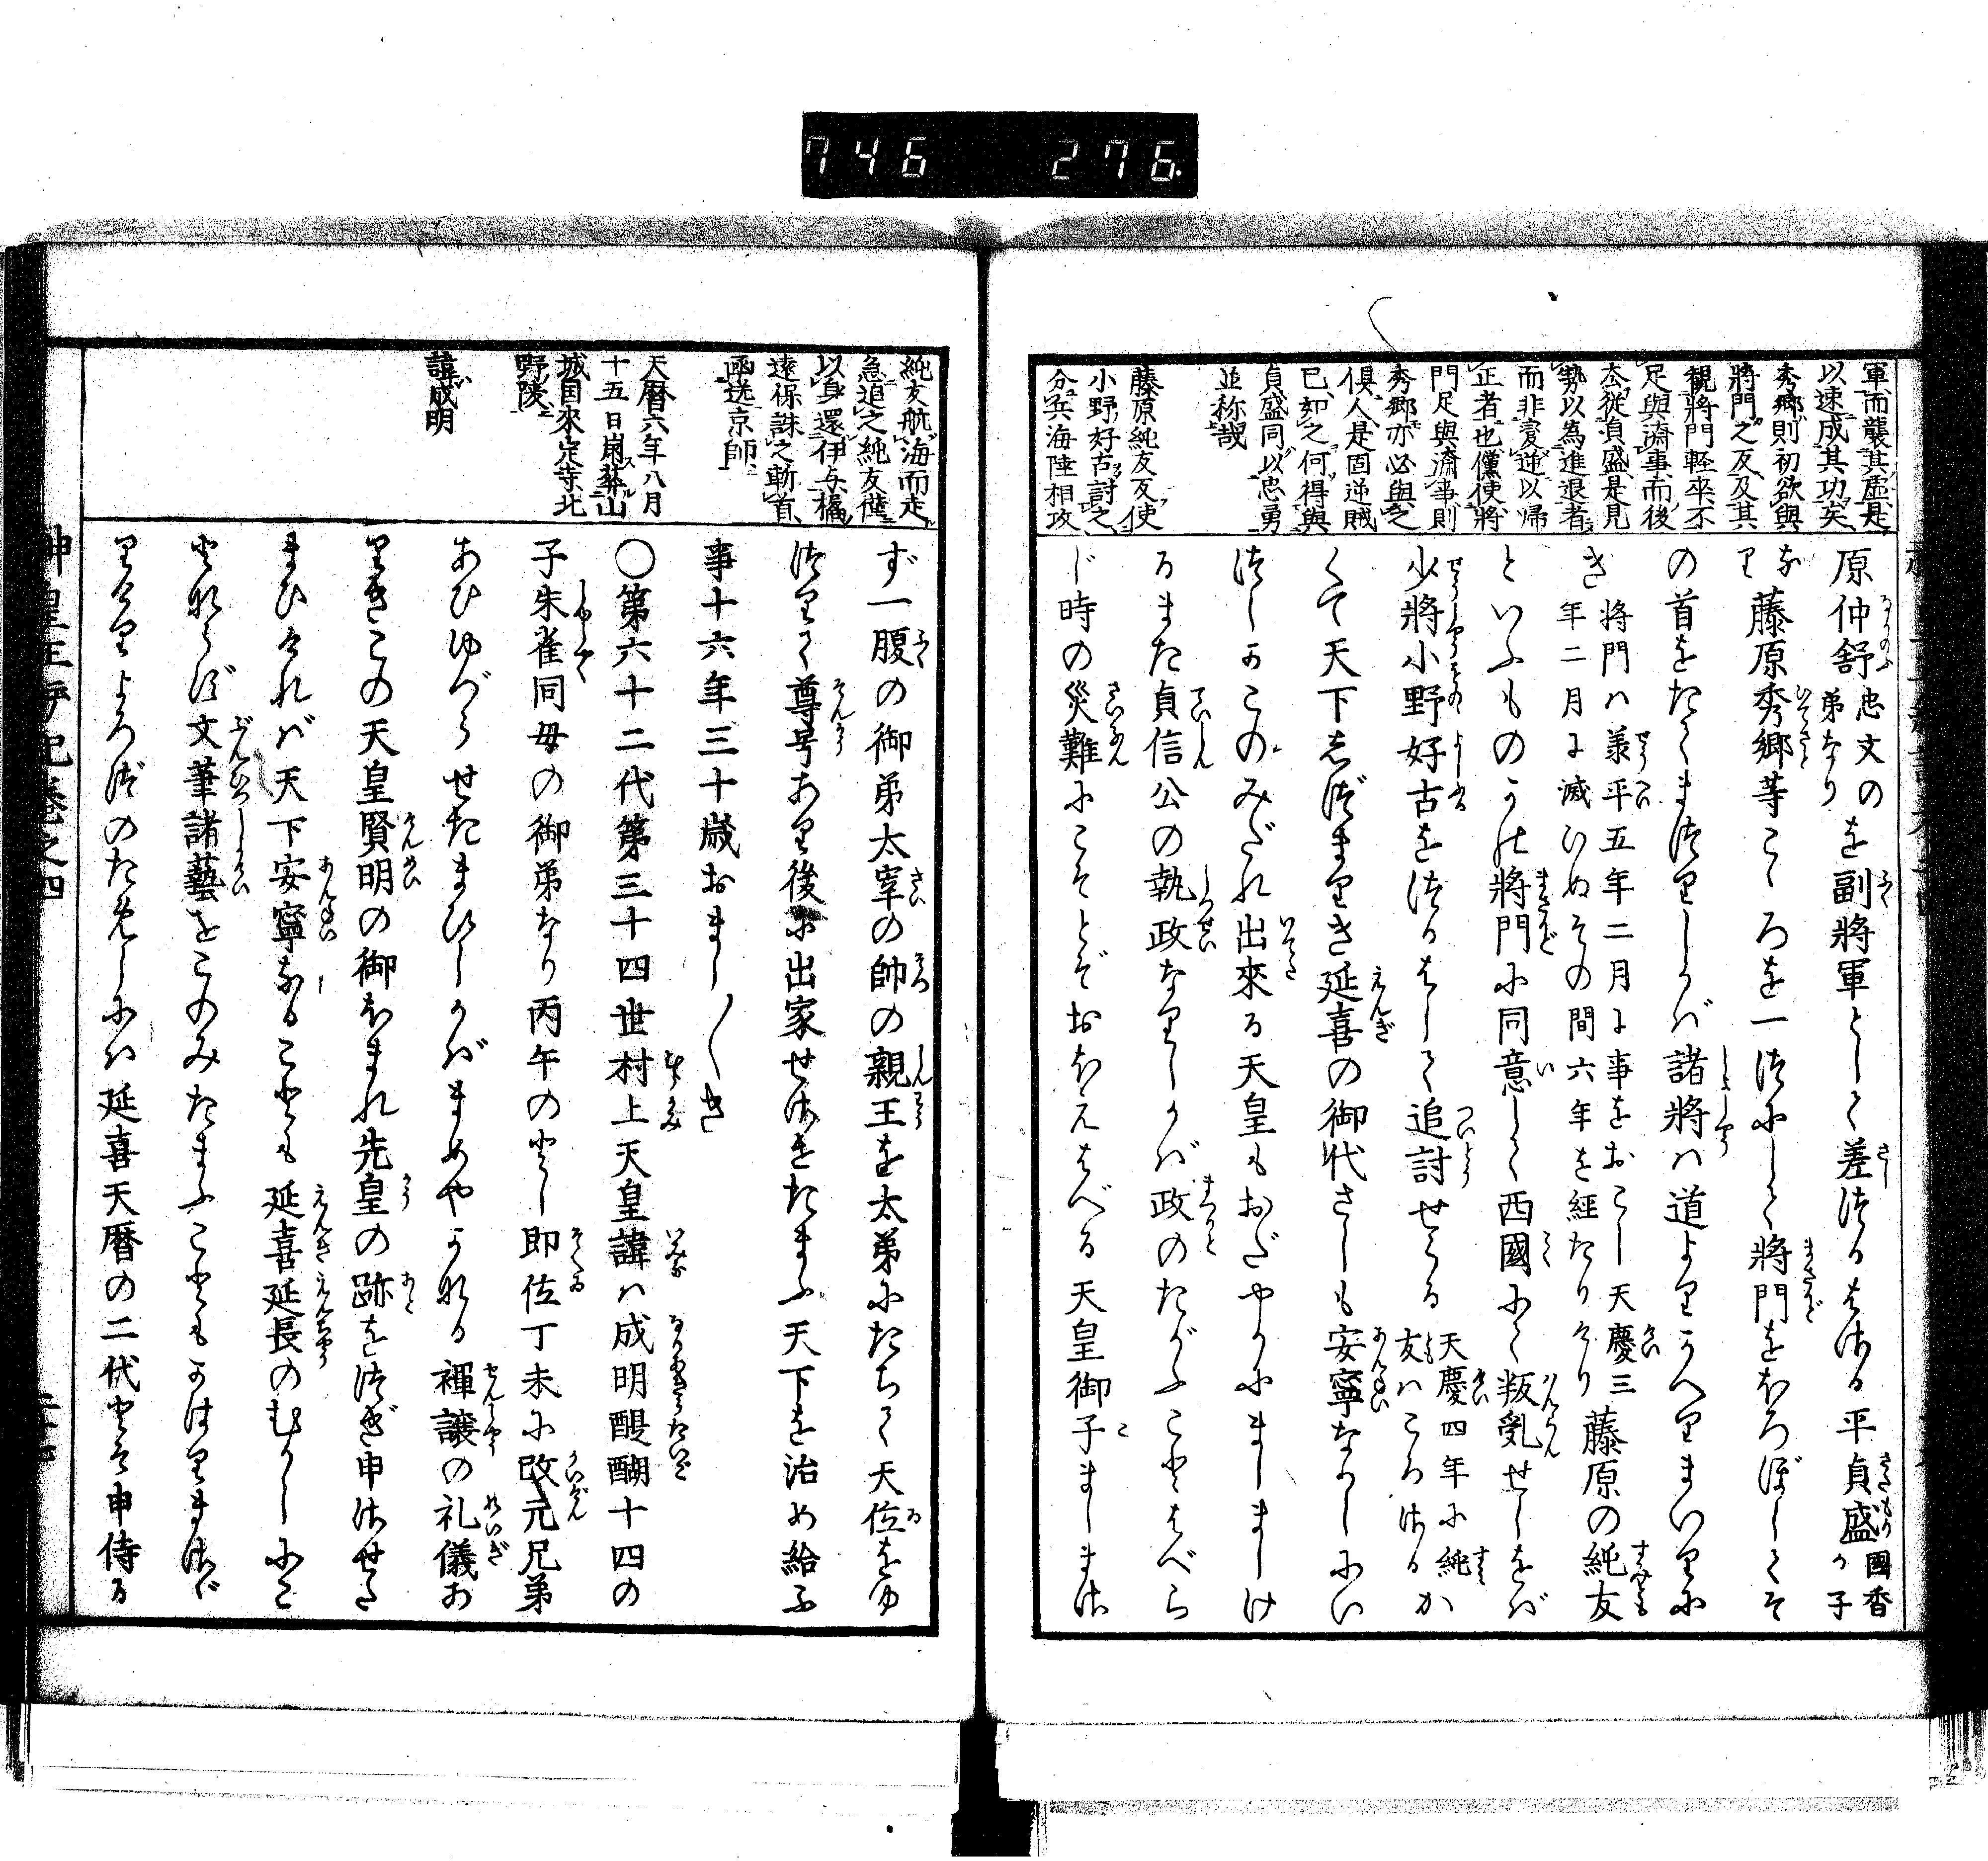 746 276.
軍而襲其虛是
以速成其功矣
秀郷則初欲與
將門之反及其
観將門軽率不
足與濟事而後
去從貞盛是見
勢以為進退者
而非憂逆以帰
正者也儻使將
門足與濟事則
秀郷亦必與之
俱人是固逆賊
已如之何得與
貞盛同以忠勇
並称哉
藤原純友反使
小野好古討之
分兵海陸相攻
原仲舒忠文の弟なりを副將軍として差つかはさる平貞盛國香が子
藤原秀郷等こゝろを一つにして將門をほろぼしてそ
の首をたてまつりしかば諸將ハ道よりかへりまいりに
き將門ハ承平五年二月に事をおこし天慶三年二月に滅ひぬその間六年を経たりけり藤原の純友
といふものかの將門に同意して西國にて叛乱せしをば
少將小野好古をつかはして追討せらる天慶四年に純友ハころさるか
くて天下しづまりき延喜の御代さしも安寧なりしにい
つしかこのみだれ出來る天皇もおだやかにましましけ
るまた貞信公の執政なりしかば政のたがふことはべら
じ時の災難にこそとぞおぼえはべる天皇御子ましまさ
純友航海而走
急追之純友僅
以身還伊与橘
遠保誅之斬首
函送京師
天暦六年八月
十五日崩葬山
城国來定寺北
野陵
諱成明
ず一腹の御弟太宰の帥の親王を太弟にたちて天位をゆ
づりて尊号あり後に出家せさせたまふ天下を治め給ふ
事十六年三十歳おまし〱き
〇第六十二代第三十四世村上天皇諱ハ成明醍醐十四の
子朱雀同母の御弟なり丙午のとし即位丁未に改元兄弟
あひゆづらせたまひしかばまめやかなる禪讓の礼儀お
りきこの天皇賢明の御ほまれ先皇の跡をつぎ申させた
まひければ天下安寧なることも延喜延長のむかしにこ
とならず文筆諸藝をこのみたまふこともかはりまさず
りけりよろづのためしにハ延喜天暦の二代とぞ申侍る